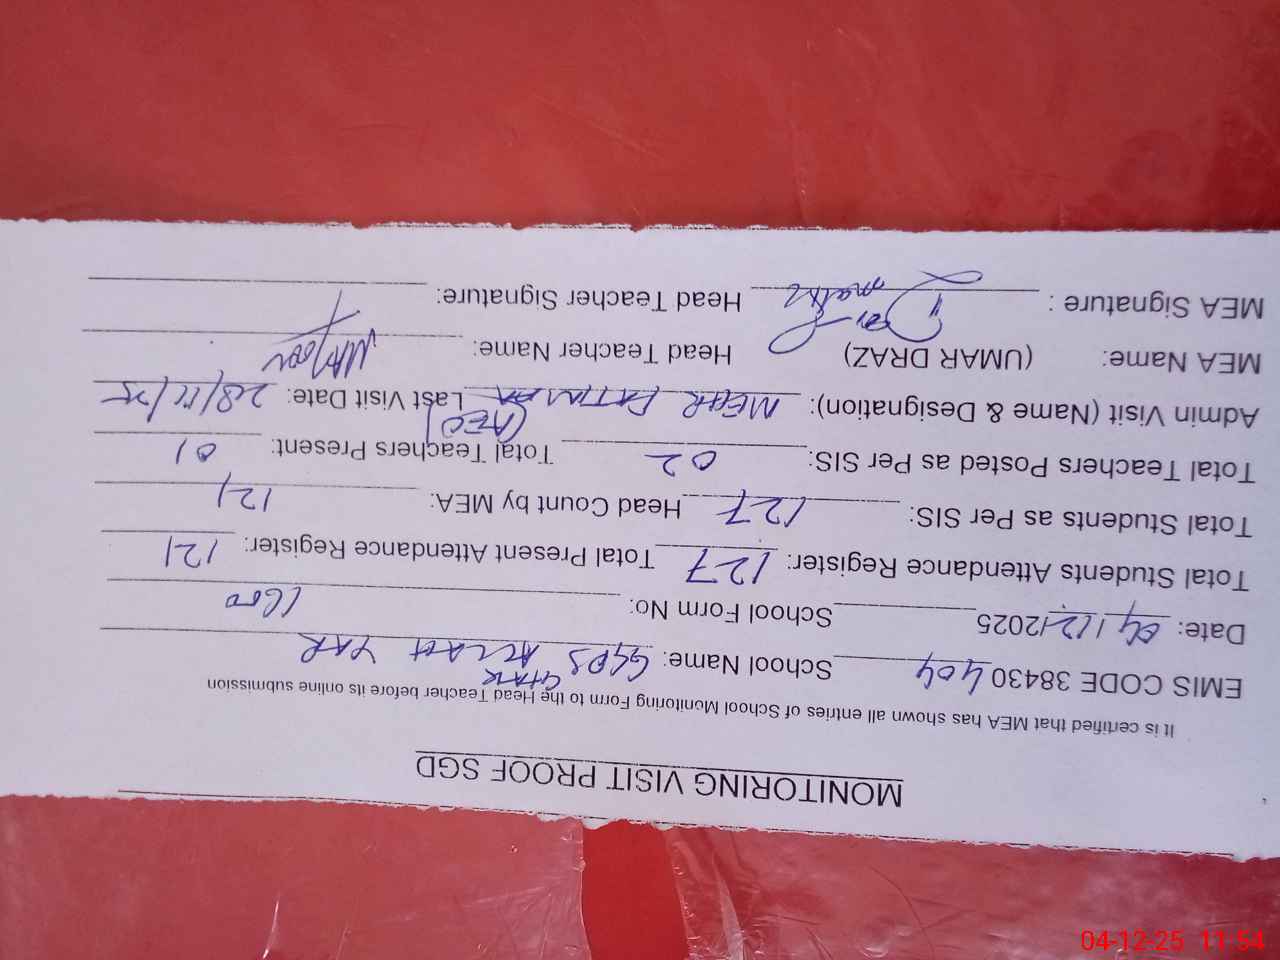 MONITORING VISIT PROOF SGD
It is certified that MEA has shown all entries of School Monitoring Form to the Head Teacher before its online submission
EMIS CODE 38430404 School Name: GGPS ALLAH YAR
Date: 04/12/2025 School Form No:
Total Students Attendance Register: 127 Total Present Attendance Register: 121
Total Students as Per SIS: 127 Head Count by MEA: 121
Total Teachers Posted as Per SIS: 02 Total Teachers Present: 01
Admin Visit (Name & Designation): MEHR FATIMA (AEO) Last Visit Date: 28/11/25
MEA Name: (UMAR DRAZ) Head Teacher Name:
MEA Signature : Head Teacher Signature:
04-12-25 11:54